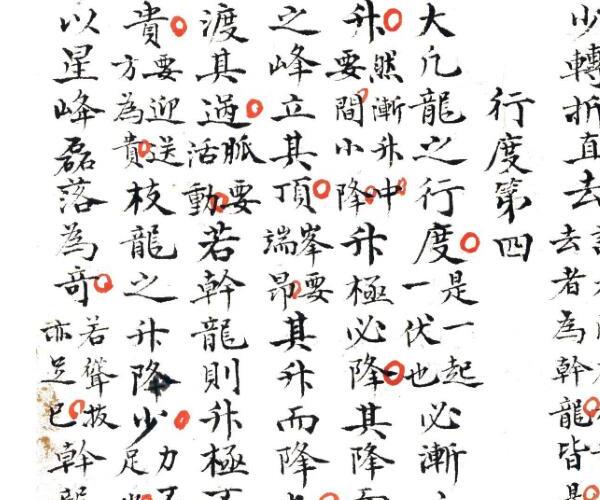 少轉折直去去者為幹龍皆是
行度第四
大凡龍之行度是一起一伏也必漸
升然漸升中要間小降升極必降其降而
之峰立其頂峯要端昂其升而降
渡其過脈要活動若幹龍則升極
貴要迎送方為貴枝龍之升降少力足
以星峰磊落為奇若聳拔亦足巳幹